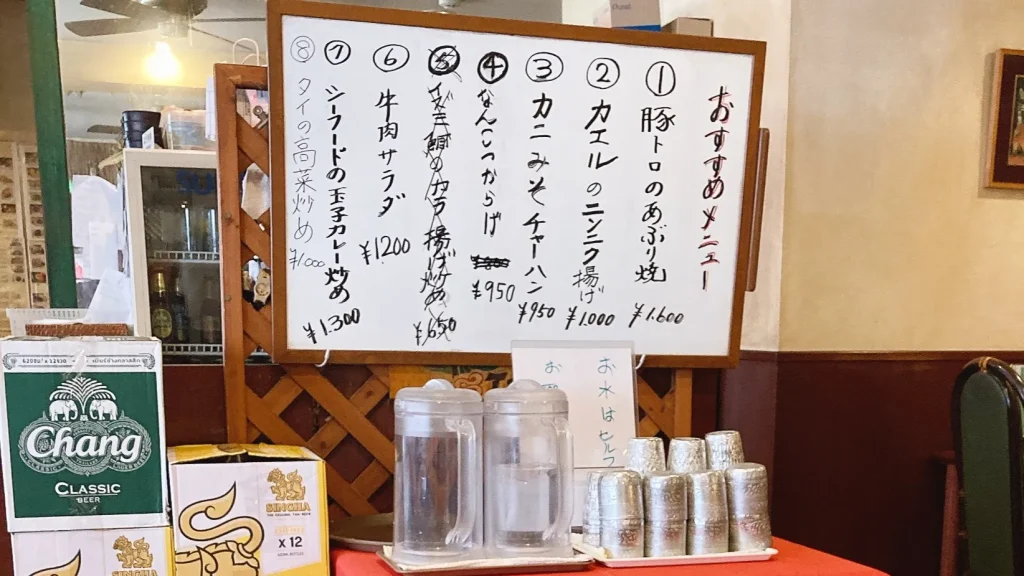 おすすめメニュー
① 豚トロのあぶり焼 ¥1.600
② カエルのニンニク揚げ ¥1.000
③ カニみそチャーハン ¥950
④ なんこつからげ ¥950
⑥ 牛肉サラダ ¥1200
⑦ シーフードの玉子カレー炒め ¥1.300
⑧ タイの高菜炒め ¥1.000
お水はセルフ
お
Chang
CLASSIC
BEER
SINGHA
X 12
SINGHA